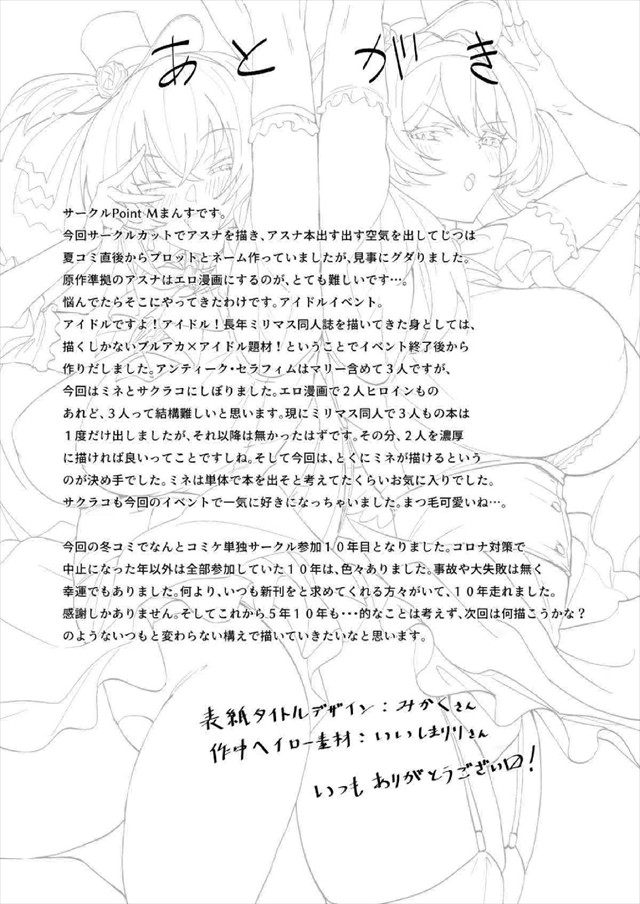 あとがき
サークルPoint Mまんすです。
今回サークルカットでアスナを描き、アスナ本出す出す空気を出してじつは
夏コミ直後からプロットとネーム作っていましたが、見事にグダりました。
原作準拠のアスナはエロ漫画にするのが、とても難しいです…。
悩んでたらそこにやってきたわけです。アイドルイベント。
アイドルですよ！アイドル！長年ミリマス同人誌を描いてきた身としては、
描くしかないブルアカ×アイドル題材！ということでイベント終了後から
作りだしました。アンティーク・セラフィムはマリー含めて３人ですが、
今回はミネとサクラコにしぼりました。エロ漫画で２人ヒロインもの
あれど、３人って結構難しいと思います。現にミリマス同人で３人もの本は
１度だけ出しましたが、それ以降は無かったはずです。その分、２人を濃厚
に描ければ良いってことですしね。そして今回は、とくにミネが描けるという
のが決め手でした。ミネは単体で本を出そと考えてたくらいお気に入りでした。
サクラコも今回のイベントで一気に好きになっちゃいました。まつ毛可愛いね…。
今回の冬コミでなんとコミケ単独サークル参加１０年目となりました。コロナ対策で
中止になった年以外は全部参加していた１０年は、色々ありました。事故や大失敗は無く
幸運でもありました。何より、いつも新刊をと求めてくれる方々がいて、１０年走れました。
感謝しかありません。そしてこれから５年１０年も・・・的なことは考えず、次回は何描こうかな？
のようないつもと変わらない構えで描いていきたいなと思います。
表紙タイトルデザイン：みかくさん
作中ヘイロー素材：いいしまりりさん
いつもありがとうござい口！